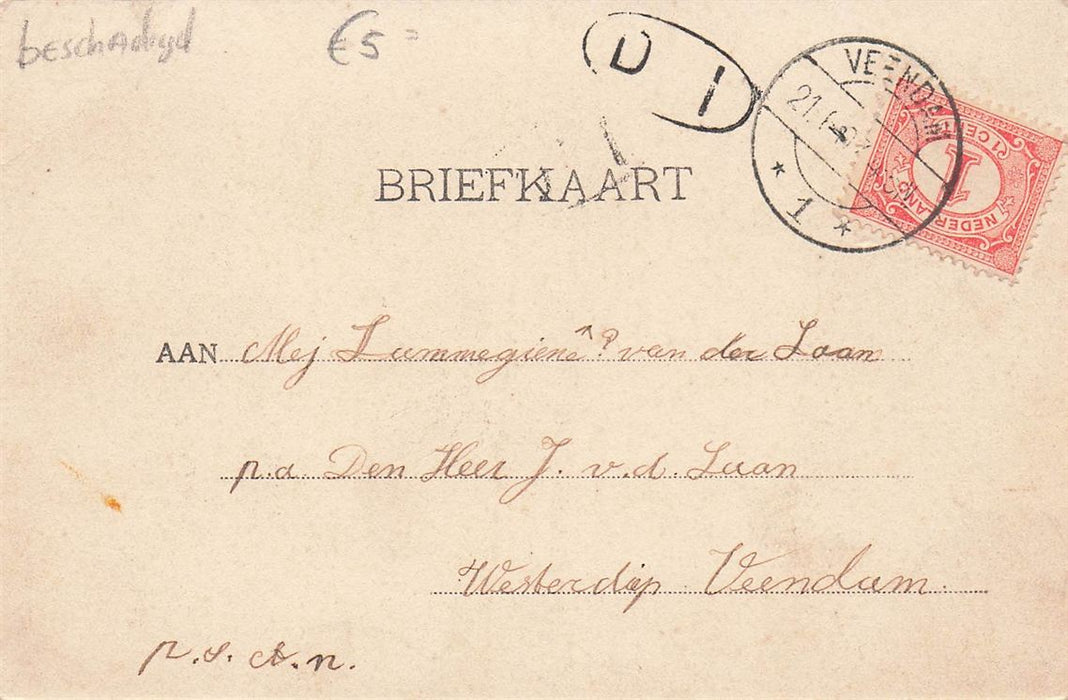 beschadigd
€5=
D I
VEENDAM
21.
1
1 CENT
1
NEDERLAND
BRIEFKAART
AAN Mej Lammegiene v.d. van der Laan
p.a. Den Heer J. v.d. Laan
Westerdiep Veendam.
p.s. A.n.